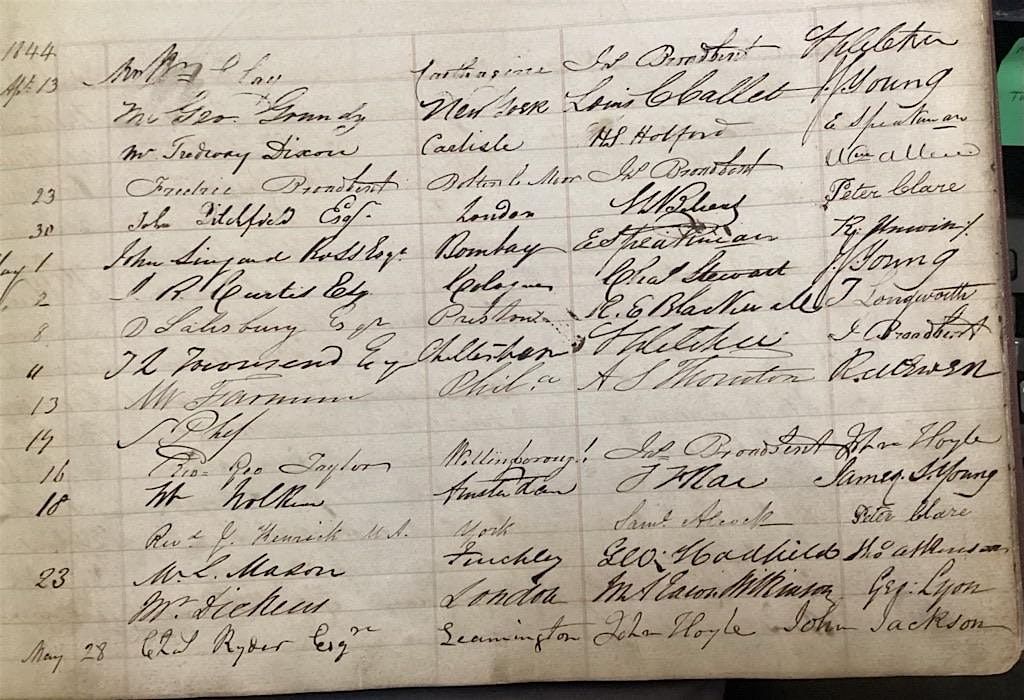 1844
Apl. 13 Carthagine Jas Broadbent S Fletcher
Mr Geo. Grundy New York Louis C Callet J Young
Mr Tredway Dixon Carlisle H.S. Holford E Speakman
23 Fredric Broadbent Bolton le Moor Jas Broadbent Wm Allen
30 John Esqr. London Peter Clare
May 1 John Ross Esqr Bombay E Speakman R. Unwin
2 J R Curtis Esq Cologne Chas Stewart J Young
8 D Salisbury Esqr Preston R. E Blackwall T Longworth
11 Townsend Esq Cheltenham S Fletcher J Broadbent
13 Mr Farnum Phil.a A S Thornton R. McEwen
14
16 Geo Taylor Wellinborough Jas Broadbent John Hoyle
18 Mr Amsterdam James. S. Young
Revd J. Kenrick M.A. York Saml Alcock Peter Clare
23 Mr L. Mason Finchley Geo: Hadfield Tho Atkinson
Mr Dickens London Wilkinson Geo: Lyon
May 28 Ryder Esqre Leamington John Hoyle John Jackson